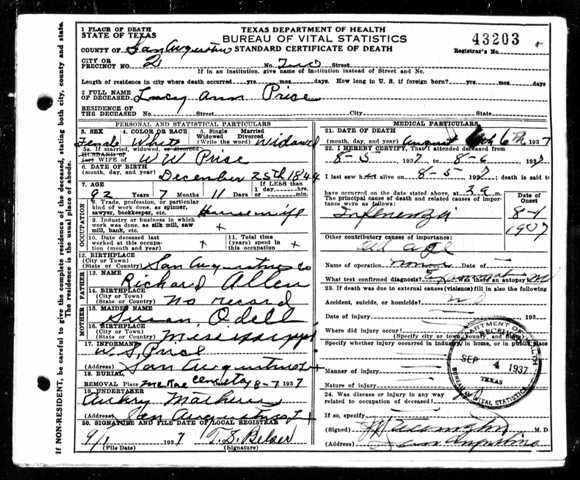 1 PLACE OF DEATH
STATE OF TEXAS
TEXAS DEPARTMENT OF HEALTH
BUREAU OF VITAL STATISTICS
STANDARD CERTIFICATE OF DEATH
43203
Registrar's No.
COUNTY OF San Augustine
CITY OR PRECINCT NO. 2
No. Street
If in an institution, give name of institution instead of Street and No.
Length of residence in city where death occurred yrs. mos. days. How long in U. S. if foreign born? yrs. mos. days
2 FULL NAME OF DECEASED Lucy Ann Price
RESIDENCE OF THE DECEASED Street and No. City State
PERSONAL AND STATISTICAL PARTICULARS
3. SEX 4. COLOR OR RACE 5. Single Married Widowed Divorced (Write the word)
Female White Widowed
5a. If married, widowed, or divorced
HUSBAND OF (or) WIFE OF W W Price
6. DATE OF BIRTH (month, day, and year) December 25th 1844
7. AGE Years Months Days If LESS than 1 day, hrs. min.
92 7 11
OCCUPATION
8. Trade, profession, or particular kind of work done, as spinner, sawyer, bookkeeper, etc. Housewife
9. Industry or business in which work was done, as silk mill, saw mill, bank, etc.
10. Date deceased last worked at this occupation (month and year)
11. Total time (years) spent in this occupation
12. BIRTHPLACE (City or Town) (State or Country) San Augustine Co
FATHER
13. NAME Richard Allen
14. BIRTHPLACE (City or Town) (State or Country) No record
MOTHER
15. MAIDEN NAME Susan Odell
16. BIRTHPLACE (City or Town) (State or Country) Mississippi
17. INFORMANT W S Price
(Address) San Augustine
18. BURIAL REMOVAL Place Cemetery 8-7 1937
19. UNDERTAKER
(Address) San Augustine
20. SIGNATURE AND FILE DATE OF LOCAL REGISTRAR
9/1 1937 T. S. Belser
(File Date) (Signature)
MEDICAL PARTICULARS
21. DATE OF DEATH (month, day, and year) August 6th 1937
22. I HEREBY CERTIFY, That I attended deceased from
8-5 1937 8-6 1937
I last saw h alive on 8-5 1937 death is said to
have occurred on the date stated above, at 3 a m.
The principal cause of death and related causes of importance were as follows:
Date of Onset
Influenza 8-1 1937
Other contributory causes of importance:
Old age
Name of operation none Date of
What test confirmed diagnosis? Was there an autopsy?
23. If death was due to external causes (violence) fill in also the following:
Accident, suicide, or homicide? no
Date of injury 193
Where did injury occur?
(Specify city or town, county, and state)
Specify whether injury occurred in industry, in home, or in public place.
Manner of injury
Nature of injury
24. Was disease or injury in any way related to occupation of deceased?
If so, specify
(Signed) M. D
(Address) San Augustine
DEPARTMENT OF HEALTH
RECEIVED
SEP 4 1937
TEXAS
BUREAU OF VITAL STATISTICS